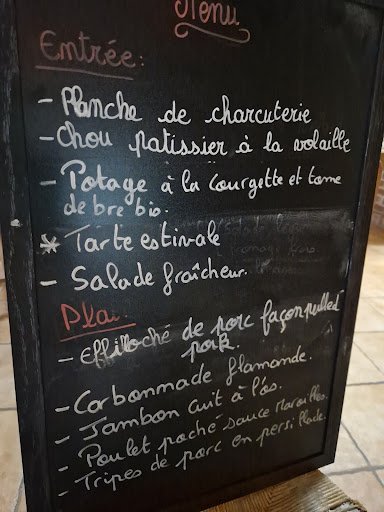 Menu
Entrée:
- Planche de charcuterie
- Chou patissier à la volaille
- Potage à la courgette et tome
de bre bio.
* Tarte estivale
- Salade fraîcheur.
Pla
- Effiloché de porc façon pulled
pork.
- Carbonnade flamande.
- Jambon cuit à l'os.
- Poulet poché sauce Maroilles.
- Tripes de porc en persillade.